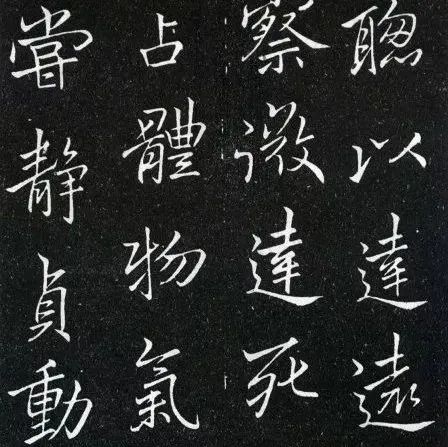 聰以達遠
察微達死
占體物氣
嘗静貞動